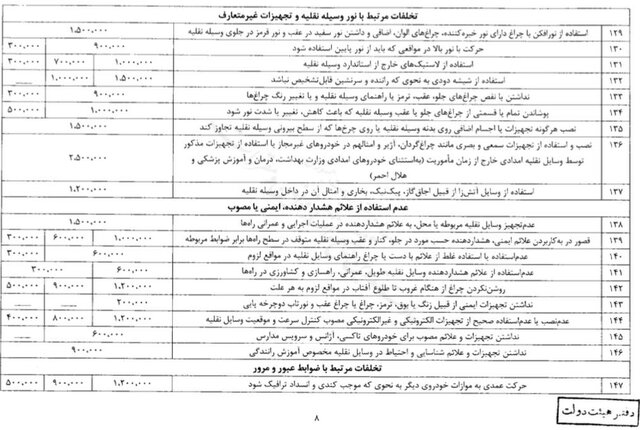 تخلفات مرتبط با نور وسیله نقلیه و تجهیزات غیرمتعارف
۱۲۹ استفاده از نورافکن یا چراغ دارای نور خیره‌کننده، چراغ‌های الوان، اضافی و داشتن نور سفید در عقب و نور قرمز در جلوی وسیله نقلیه ۱،۵۰۰،۰۰۰
۱۳۰ حرکت با نور بالا در مواقعی که باید از نور پایین استفاده شود ۹۰۰،۰۰۰ ۳۰۰،۰۰۰
۱۳۱ استفاده از لاستیک‌های خارج از استاندارد وسیله نقلیه ۱،۰۰۰،۰۰۰ ۷۰۰،۰۰۰ ۳۰۰،۰۰۰
۱۳۲ استفاده از شیشه دودی به نحوی که راننده و سرنشین قابل‌تشخیص نباشد ۱،۵۰۰،۰۰۰ ۱،۰۰۰،۰۰۰
۱۳۳ نداشتن یا نقص چراغ‌های جلو، عقب، ترمز یا راهنمای وسیله نقلیه و یا تغییر رنگ چراغ‌ها ۹۰۰،۰۰۰ ۳۰۰،۰۰۰
۱۳۴ پوشاندن تمام یا قسمتی از چراغ‌های جلو یا عقب وسیله نقلیه که باعث کاهش، تغییر یا شدت نور شود ۱،۰۰۰،۰۰۰ ۵۰۰،۰۰۰
۱۳۵ نصب هرگونه تجهیزات یا اجسام اضافی روی بدنه وسیله نقلیه یا روی چرخ‌ها که از سطح بیرونی وسیله نقلیه تجاوز کند ۱،۵۰۰،۰۰۰
۱۳۶ نصب و استفاده از تجهیزات سمعی و بصری مانند چراغ‌گردان، آژیر و امثالهم در خودروهای غیرمجاز یا استفاده از تجهیزات مذکور
توسط وسایل نقلیه امدادی خارج از زمان مأموریت (به‌استثنای خودروهای امدادی وزارت بهداشت، درمان و آموزش پزشکی و ۲،۵۰۰،۰۰۰
هلال احمر)
۱۳۷ استفاده از وسایل آتش‌زا از قبیل اجاق‌گاز، پیک‌نیک، بخاری و امثال آن در داخل وسیله نقلیه ۱،۲۰۰،۰۰۰
عدم استفاده از علائم هشدار دهنده، ایمنی یا مصوب
۱۳۸ عدم‌تجهیز وسایل نقلیه مربوطه یا محل، به علائم هشداردهنده در عملیات اجرایی و عمرانی راه‌ها ۱،۵۰۰،۰۰۰
۱۳۹ قصور در به‌کاربردن علائم ایمنی، هشداردهنده حسب مورد در جلو، کنار و عقب وسیله نقلیه متوقف در سطح راه‌ها برابر ضوابط مربوطه ۱،۰۰۰،۰۰۰ ۶۰۰،۰۰۰ ۳۰۰،۰۰۰
۱۴۰ عدم‌استفاده یا استفاده غلط از علائم با دست یا چراغ راهنمای وسایل نقلیه در مواقع لزوم ۶۰۰،۰۰۰ ۳۰۰،۰۰۰
۱۴۱ عدم‌استفاده از علائم هشداردهنده وسایل نقلیه طویل، عمرانی، راهسازی و کشاورزی در راه‌ها ۶۰۰،۰۰۰ ۳۰۰،۰۰۰
۱۴۲ روشن‌نکردن چراغ از هنگام غروب تا طلوع آفتاب در مواقع لزوم به هر علت ۱،۲۰۰،۰۰۰ ۹۰۰،۰۰۰ ۵۰۰،۰۰۰
۱۴۳ نداشتن تجهیزات ایمنی از قبیل زنگ یا بوق، ترمز، چراغ یا چراغ عقب و نورتاب دوچرخه پایی ۲۰۰،۰۰۰
۱۴۴ عدم‌نصب یا عدم‌استفاده صحیح از تجهیزات الکترونیکی و غیرالکترونیکی مصوب کنترل سرعت و موقعیت وسایل نقلیه ۱،۲۰۰،۰۰۰ ۸۰۰،۰۰۰ ۴۰۰،۰۰۰
۱۴۵ نداشتن تجهیزات و علائم مصوب برای خودروهای تاکسی، آژانس و سرویس مدارس ۶۰۰،۰۰۰
۱۴۶ نداشتن تجهیزات و علائم شناسایی و احتیاط در وسایل نقلیه مخصوص آموزش رانندگی ۹۰۰،۰۰۰
تخلفات مرتبط با ضوابط عبور و مرور
۱۴۷ حرکت عمدی به موازات خودروی دیگر به نحوی که موجب کندی و انسداد ترافیک شود ۱،۲۰۰،۰۰۰ ۹۰۰،۰۰۰ ۵۰۰،۰۰۰
۸
دفتر هیئت دولت